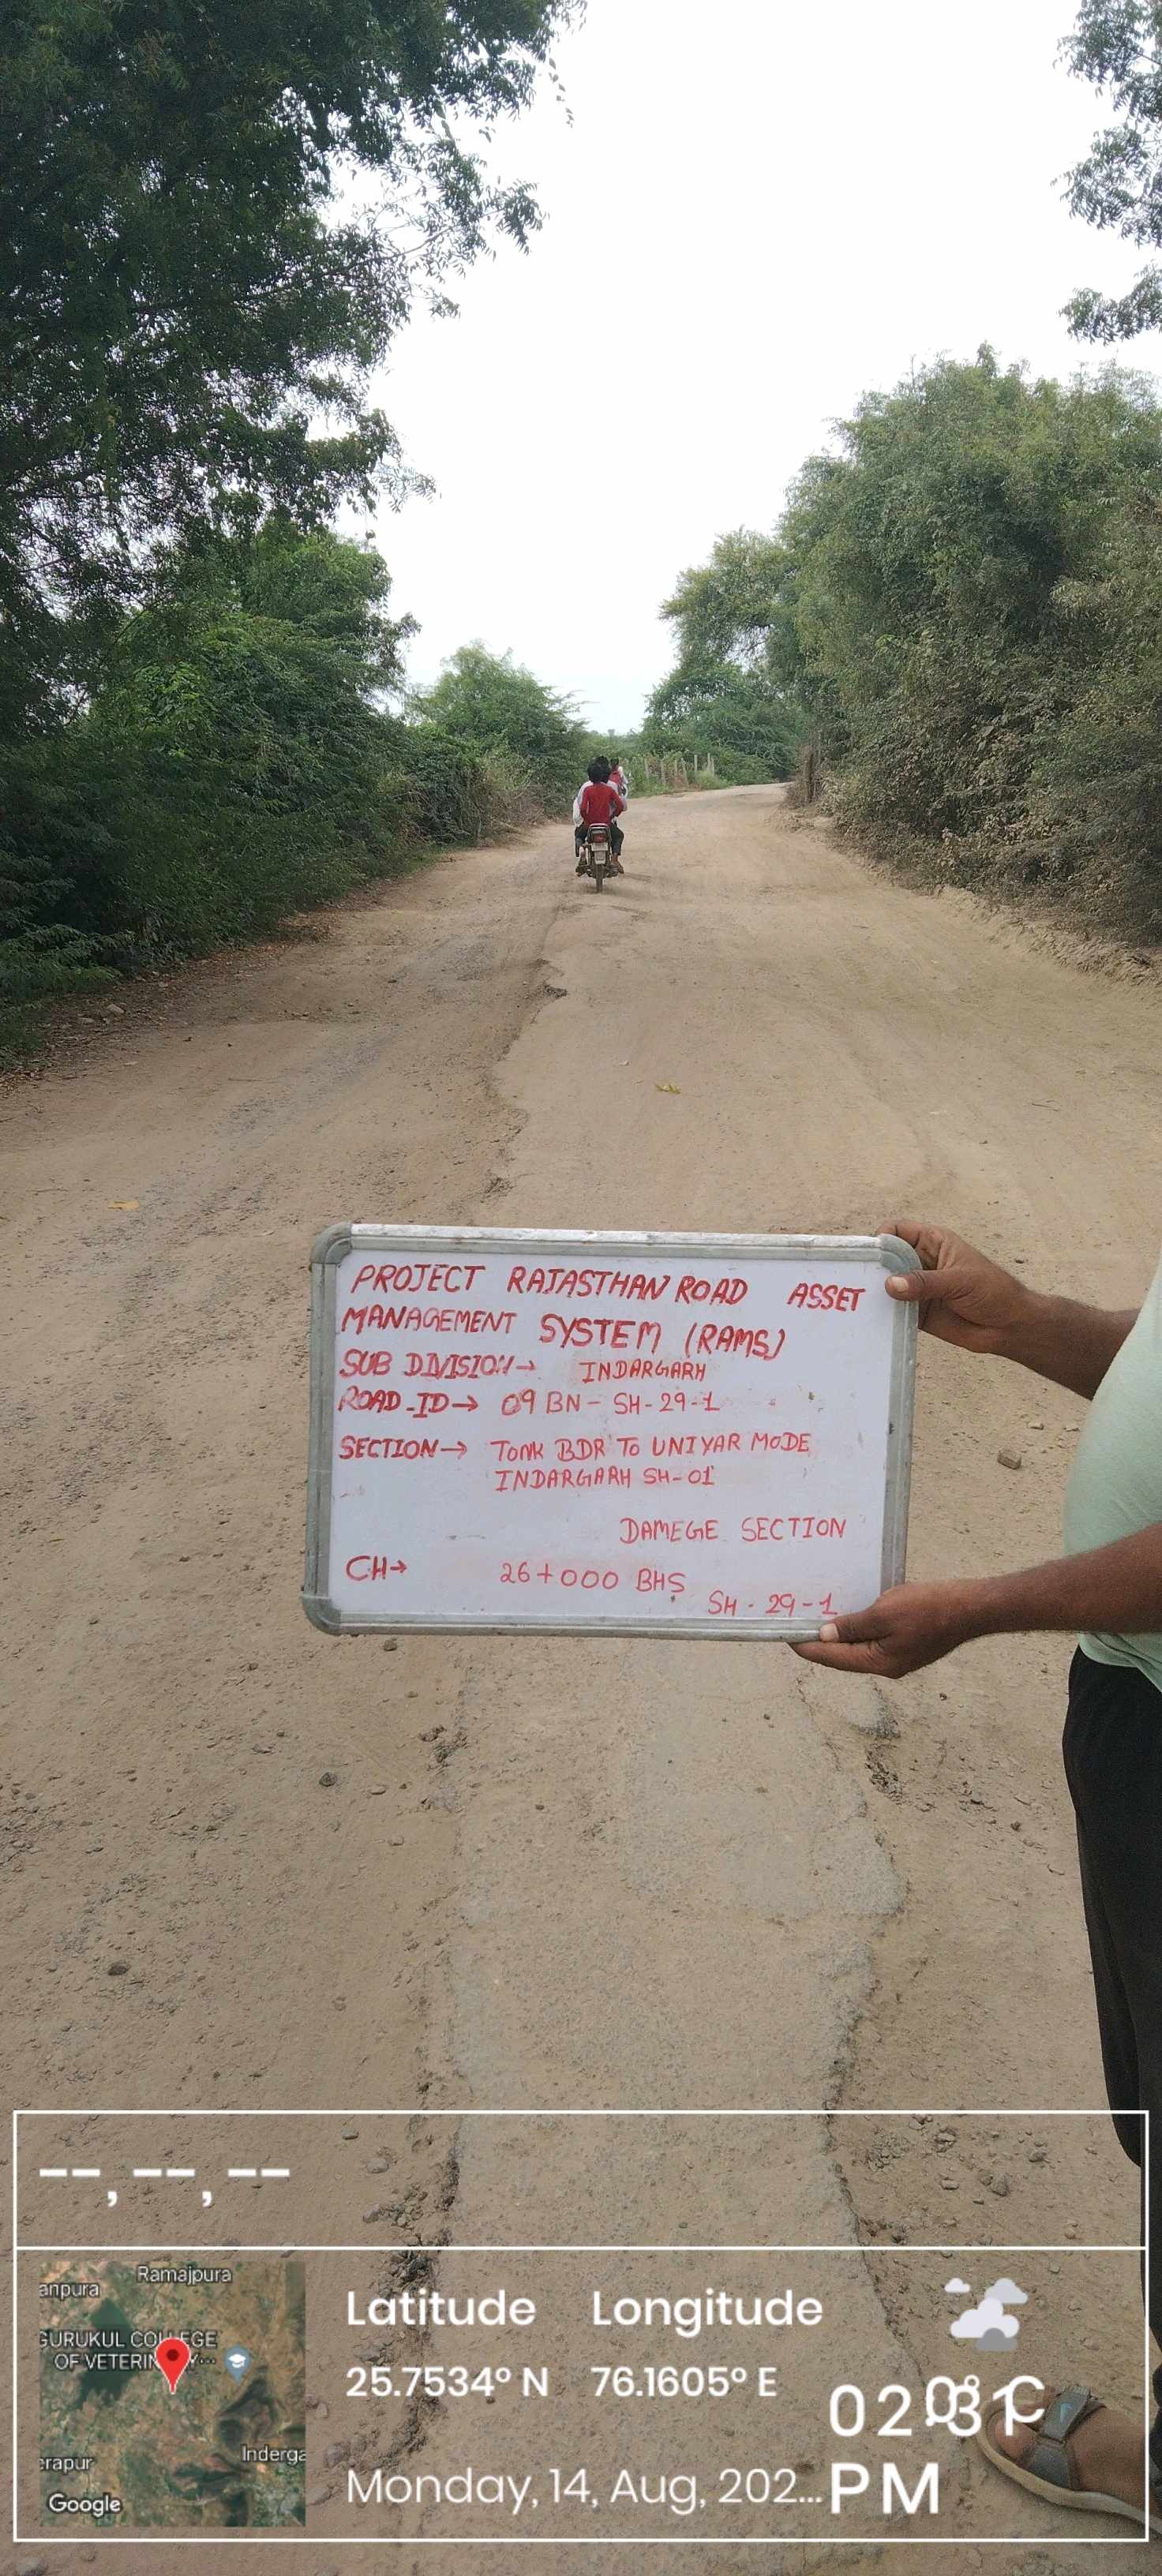 PROJECT RAJASTHAN ROAD ASSET
MANAGEMENT SYSTEM (RAMS)
SUB DIVISION→ INDARGARH
ROAD-ID→ 09 BN - SH-29-1
SECTION→ TONK BDR TO UNIYAR MODE
INDARGARH SH-01
DAMEGE SECTION
CH→ 26+000 BHS
SH-29-1
--,--,--
Ramajpura
anpura
GURUKUL COLLEGE
OF VETERIN
Inderga
erapur
Google
Latitude Longitude
25.7534° N 76.1605° E
Monday, 14, Aug, 202...
PM